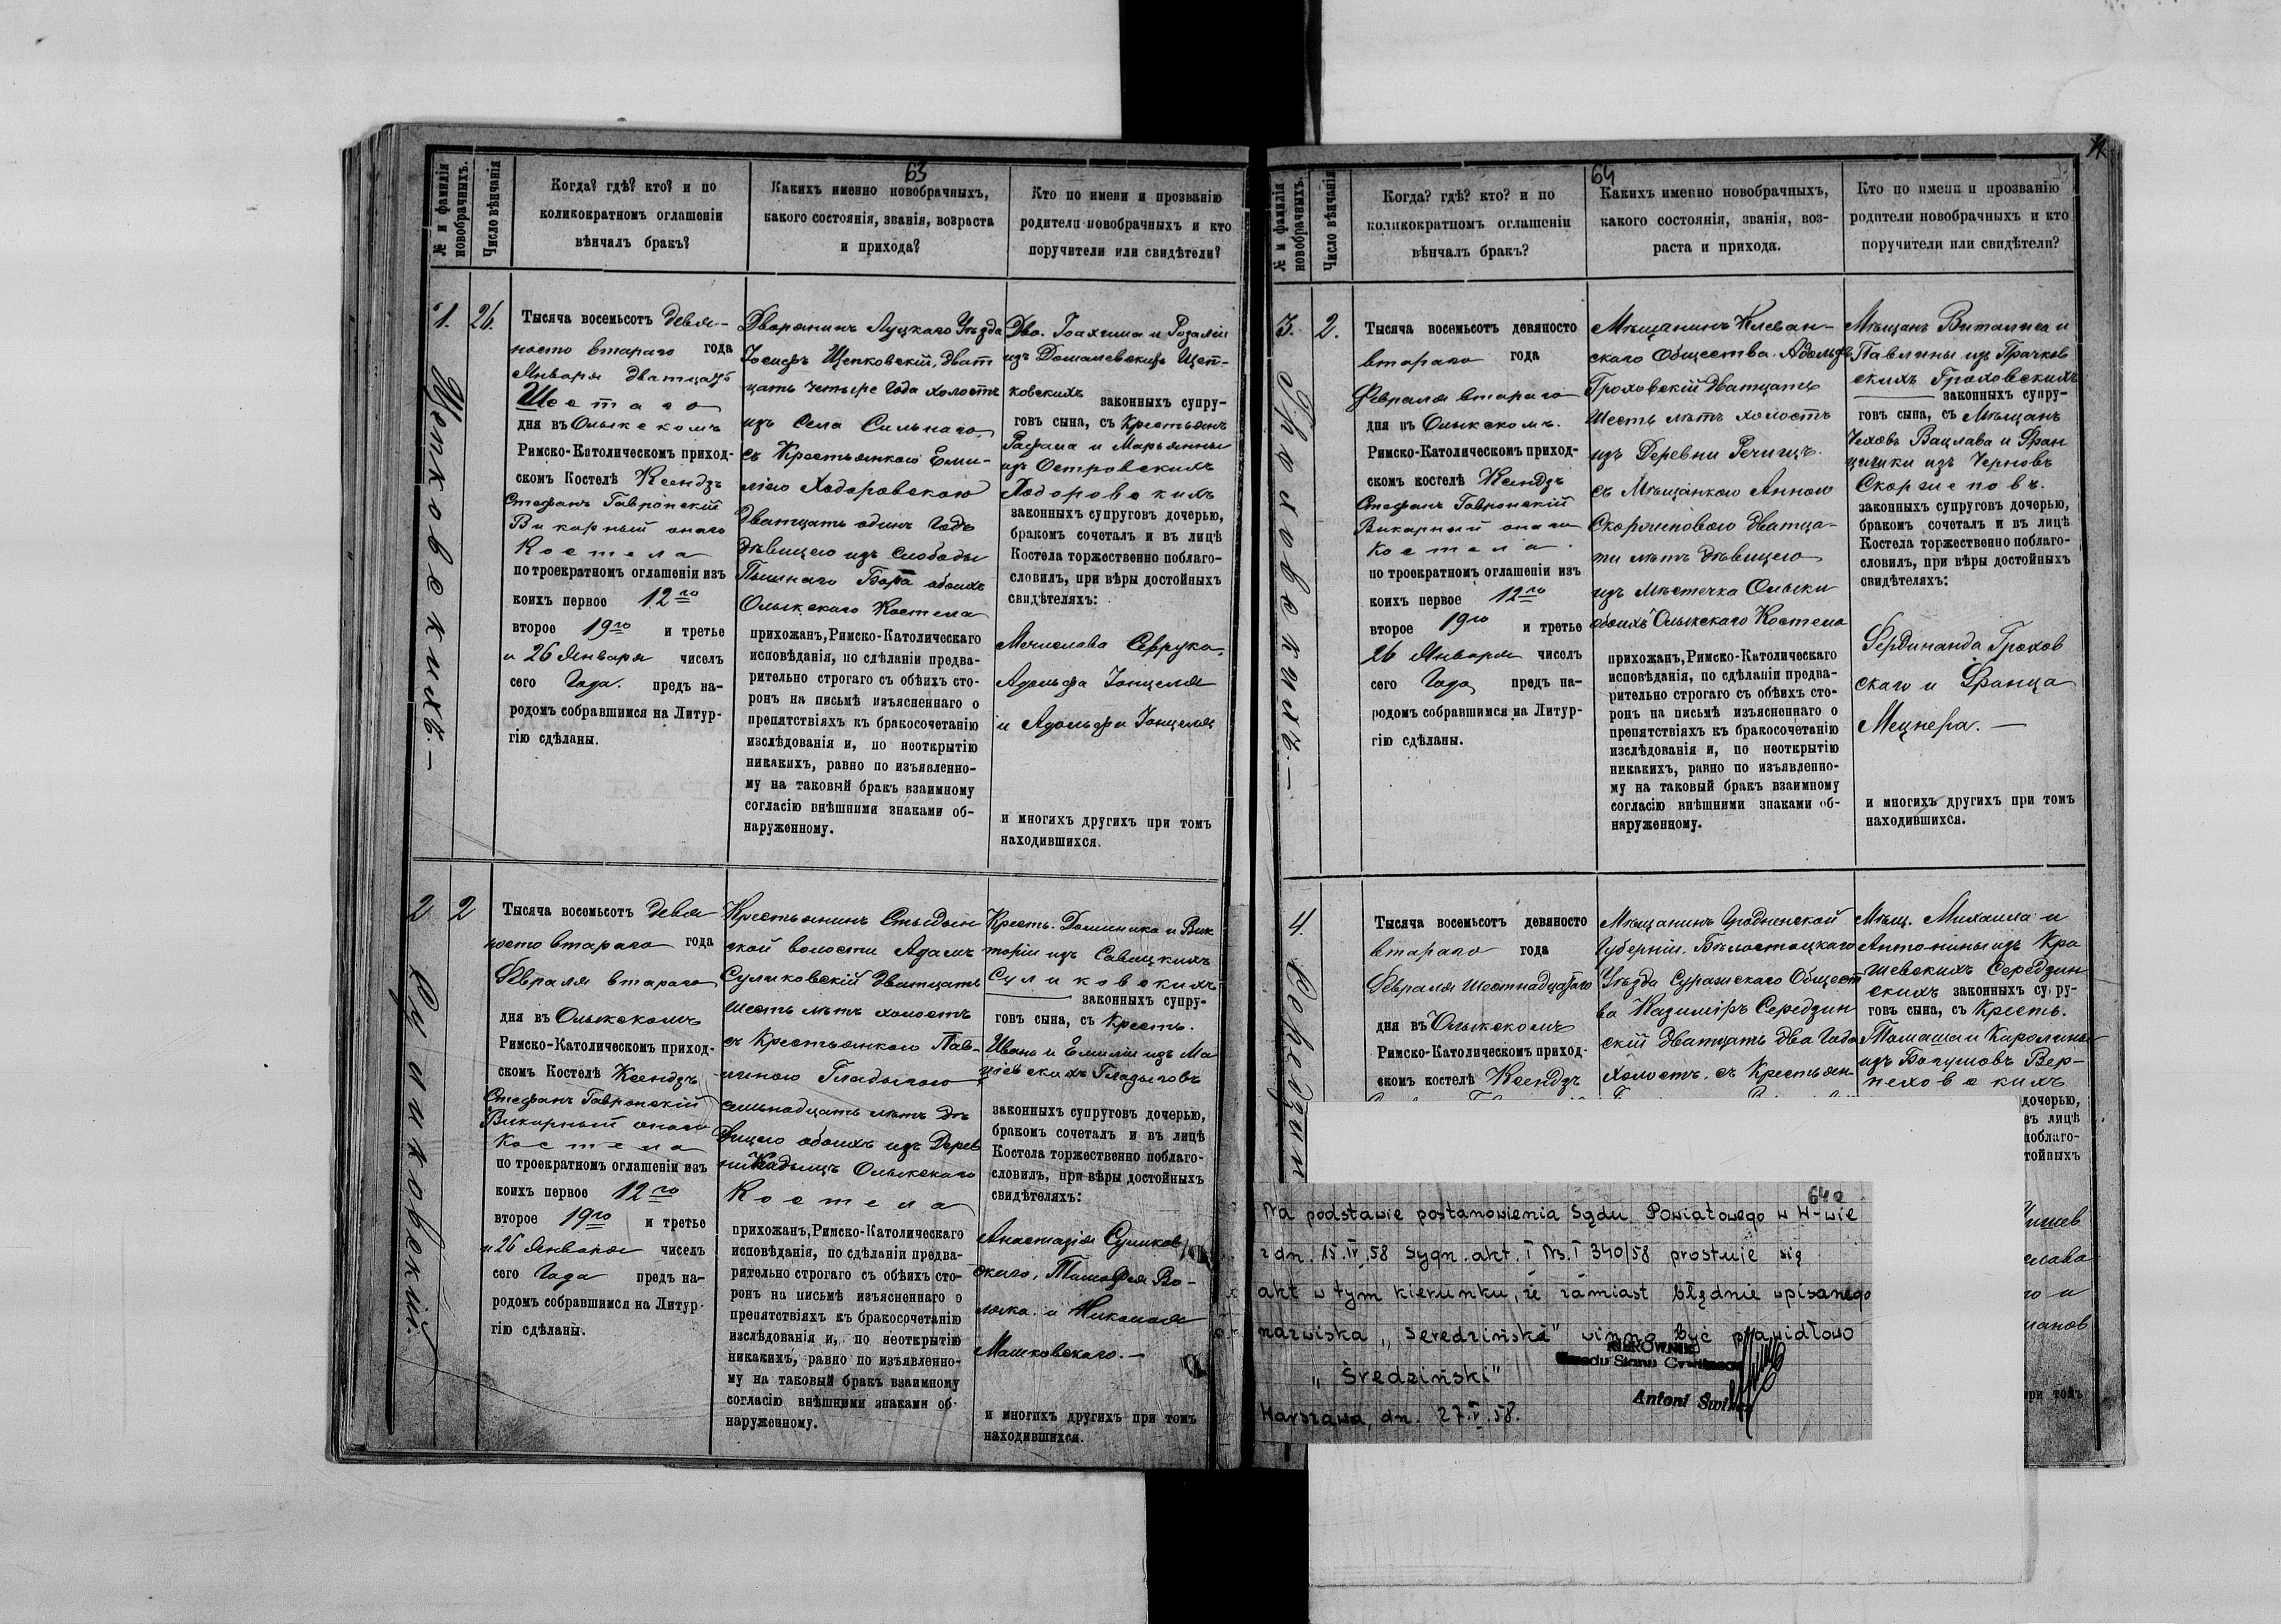 63
№ и фамилія
новобрачныхъ.
Число вѣнчанія
Когда? гдѣ? кто? и по
коликократномъ оглашеніи
вѣнчалъ бракъ?
Какихъ именно новобрачныхъ,
какого состоянія, званія, возраста
и прихода?
Кто по имени и прозванію
родители новобрачныхъ и кто
поручители или свидѣтели?
1.
26.
Щепковскихъ.—
Тысяча восемьсотъ девя-
носто втараго года
Января дватцать
Шестаго
дня въ Олыкскомъ
Римско-Католическомъ приход-
скомъ Костелѣ Ксендзъ
Стефанъ Гавронскій
Викарный онаго
Костела
по троекратномъ оглашеніи изъ
коихъ первое 12го
второе 19го и третье
и 26 Января чиселъ
сего Года. предъ на-
родомъ собравшимся на Литур-
гію сдѣланы.
Дворянинъ Луцкаго Уѣзда
Іосифъ Щепковскій, дват
цать четыре года холостъ
изъ Села Сильнаго,
съ Крестьянкою Еми-
ліею Ходоровскою
дватцать одинъ годъ
дѣвицею изъ Слободы
Пышнаго Бора обоихъ
Олыкскаго Костела
прихожанъ, Римско-Католическаго
исповѣданія, по сдѣланіи предва-
рительно строгаго съ обѣихъ сто-
ронъ на письмѣ изъясненнаго о
препятствіяхъ къ бракосочетанію
изслѣдованія и, по неоткрытію
никакихъ, равно по изъявленно-
му на таковый бракъ взаимному
согласію внѣшними знаками об-
наруженному.
Дво. Іоахима и Розаліи
изъ Домалевскихъ Щеп-
ковскихъ законныхъ супру-
говъ сына, съ Крестьянъ
Рафала и Марьянны
изъ Островскихъ
Ходоровскихъ
законныхъ супруговъ дочерью,
бракомъ сочеталъ и въ лицѣ
Костела торжественно поблаго-
словилъ, при вѣры достойныхъ
свидѣтеляхъ:
Мечислава Сефрука,
Адольфа Іонцеля
и Адольфа Іонцеля
и многихъ другихъ при томъ
находившихся.
2
2
Суликовскій.
Тысяча восемьсотъ девя
носто втараго года
Февраля втараго
дня въ Олыкскомъ
Римско-Католическомъ приход-
скомъ Костелѣ Ксендзъ
Стефанъ Гавронскій
Викарный онаго
Костела
по троекратномъ оглашеніи изъ
коихъ первое 12го
второе 19го и третье
и 26 Января чиселъ
сего Года предъ на-
родомъ собравшимся на Литур-
гію сдѣланы.
Крестьянинъ Стыдын
ской волости Адамъ
Суликовскій дватцать
шесть лѣтъ холостъ
съ Крестьянкою Пав-
линою Гладыговою
семьнадцать лѣтъ дѣ
вицею обоихъ изъ Дерев
ни Кадыщъ Олыкскаго
Костела
прихожанъ, Римско-Католическаго
исповѣданія, по сдѣланіи предва-
рительно строгаго съ обѣихъ сто-
ронъ на письмѣ изъясненнаго о
препятствіяхъ къ бракосочетанію
изслѣдованія и, по неоткрытію
никакихъ, равно по изъявленно-
му на таковый бракъ взаимному
согласію внѣшними знаками об-
наруженному.
Кресть. Доминика и Вик
торіи изъ Савицкихъ
Суликовскихъ
законныхъ супру-
говъ сына, съ Кресть.
Ивана и Емиліи изъ Ма
ціевскихъ Гладыговъ
законныхъ супруговъ дочерью,
бракомъ сочеталъ и въ лицѣ
Костела торжественно поблаго-
словилъ, при вѣры достойныхъ
свидѣтеляхъ:
Анастазія Суликов
скаго, Тимофея Во-
лочка и Николая
Машковскаго.—
и многихъ другихъ при томъ
находившихся.
64
№ и фамилія
новобрачныхъ.
Число вѣнчанія
Когда? гдѣ? кто? и по
коликократномъ оглашеніи
вѣнчалъ бракъ?
Какихъ именно новобрачныхъ,
какого состоянія, званія, воз-
раста и прихода.
Кто по имени и прозванію
родители новобрачныхъ и кто
поручители или свидѣтели?
3.
2.
Гроховскихъ.—
Тысяча восемьсотъ девяносто
втараго года
Февраля втараго
дня въ Олыкскомъ.
Римско-Католическомъ приход-
скомъ костелѣ Ксендзъ
Стефанъ Гавронскій
Викарный онаго
Костела.
по троекратномъ оглашеніи изъ
коихъ первое 12го
второе 19го и третье
26 Января чиселъ
сего Года предъ на-
родомъ собравшимся на Литур-
гію сдѣланы.
Мѣщанинъ Клеван-
скаго Общества Адольфъ
Гроховскій дватцать
шесть лѣтъ холостъ
изъ Деревни Речищъ.
съ Мѣщанкою Анною
Скоржеповою двátца-
ти лѣтъ дѣвицею
изъ Мѣстечка Олыки
обоихъ Олыкскаго Костела
прихожанъ, Римско-Католическаго
исповѣданія, по сдѣланіи предва-
рительно строгаго съ обѣихъ сто-
ронъ на письмѣ изъясненнаго о
препятствіяхъ къ бракосочетанію
изслѣдованія и, по неоткрытію
никакихъ, равно по изъявленно-
му на таковый бракъ взаимному
согласію внѣшними знаками об-
наруженному.
Мѣщанъ Виталиса и
Павлины изъ Прачков
скихъ Гроховскихъ
законныхъ супру-
говъ сына, съ Мѣщанъ
Чеховъ Вацлава и Фран
цишки изъ Черновъ
Скоржеповъ.
законныхъ супруговъ дочерью,
бракомъ сочеталъ и въ лицѣ
Костела торжественно поблаго-
словилъ, при вѣры достойныхъ
свидѣтеляхъ:
Фердинанда Грохов
скаго и Франца
Мецнера.—
и многихъ другихъ при томъ
находившихся.
4.
Тысяча восемьсотъ девяносто
втараго года
Февраля шестнадцатаго
дня въ Олыкскомъ
Римско-Католическомъ приход-
скомъ костелѣ Ксендзъ
Мѣщанинъ Гродненской
Губерніи, Бѣлостоцкаго
Уѣзда Суражскаго Общест
ва Казиміръ Середзин
скій дватцать два года
холостъ, съ Крестьян-
Мѣщ. Михаила и
Антонины изъ Кра
шевскихъ Середзин
скихъ законныхъ супру-
говъ сына, съ Кресть.
Томаша и Каролины
изъ Богушовъ Вер-
пеховскихъ
дочерью,
въ лицѣ
поблаго-
тойныхъ
при томъ
64a
Na podstawie postanowienia Sądu Powiatowego w W-wie
z dn. 15.IV.58 Sygn. akt. I Ns. I 340/58 prostuje się
akt w tym kierunku, że zamiast błędnie wpisanego
nazwiska „Seredziński" winno być prawidłowo
„Średziński"
KIEROWNIK
Urzędu Stanu Cywilnego
Antoni
Warszawa, dn. 27.V.58.